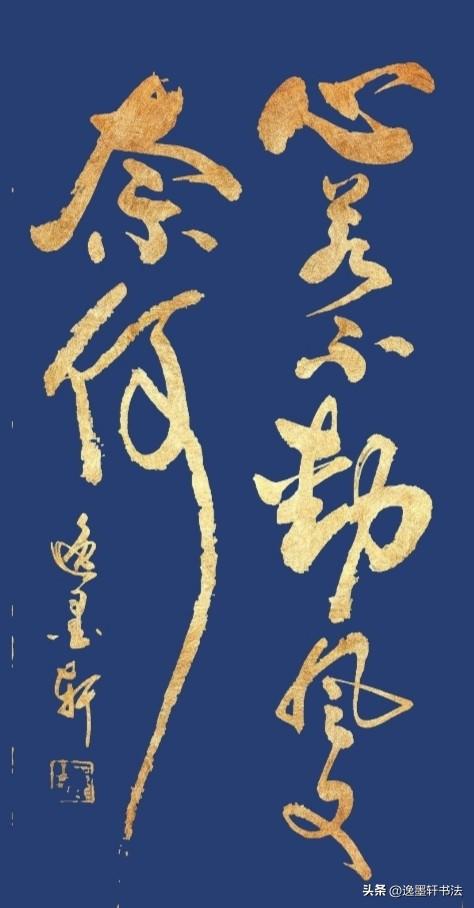 心若不動風又
奈何
逸墨轩
头条 @逸墨轩书法